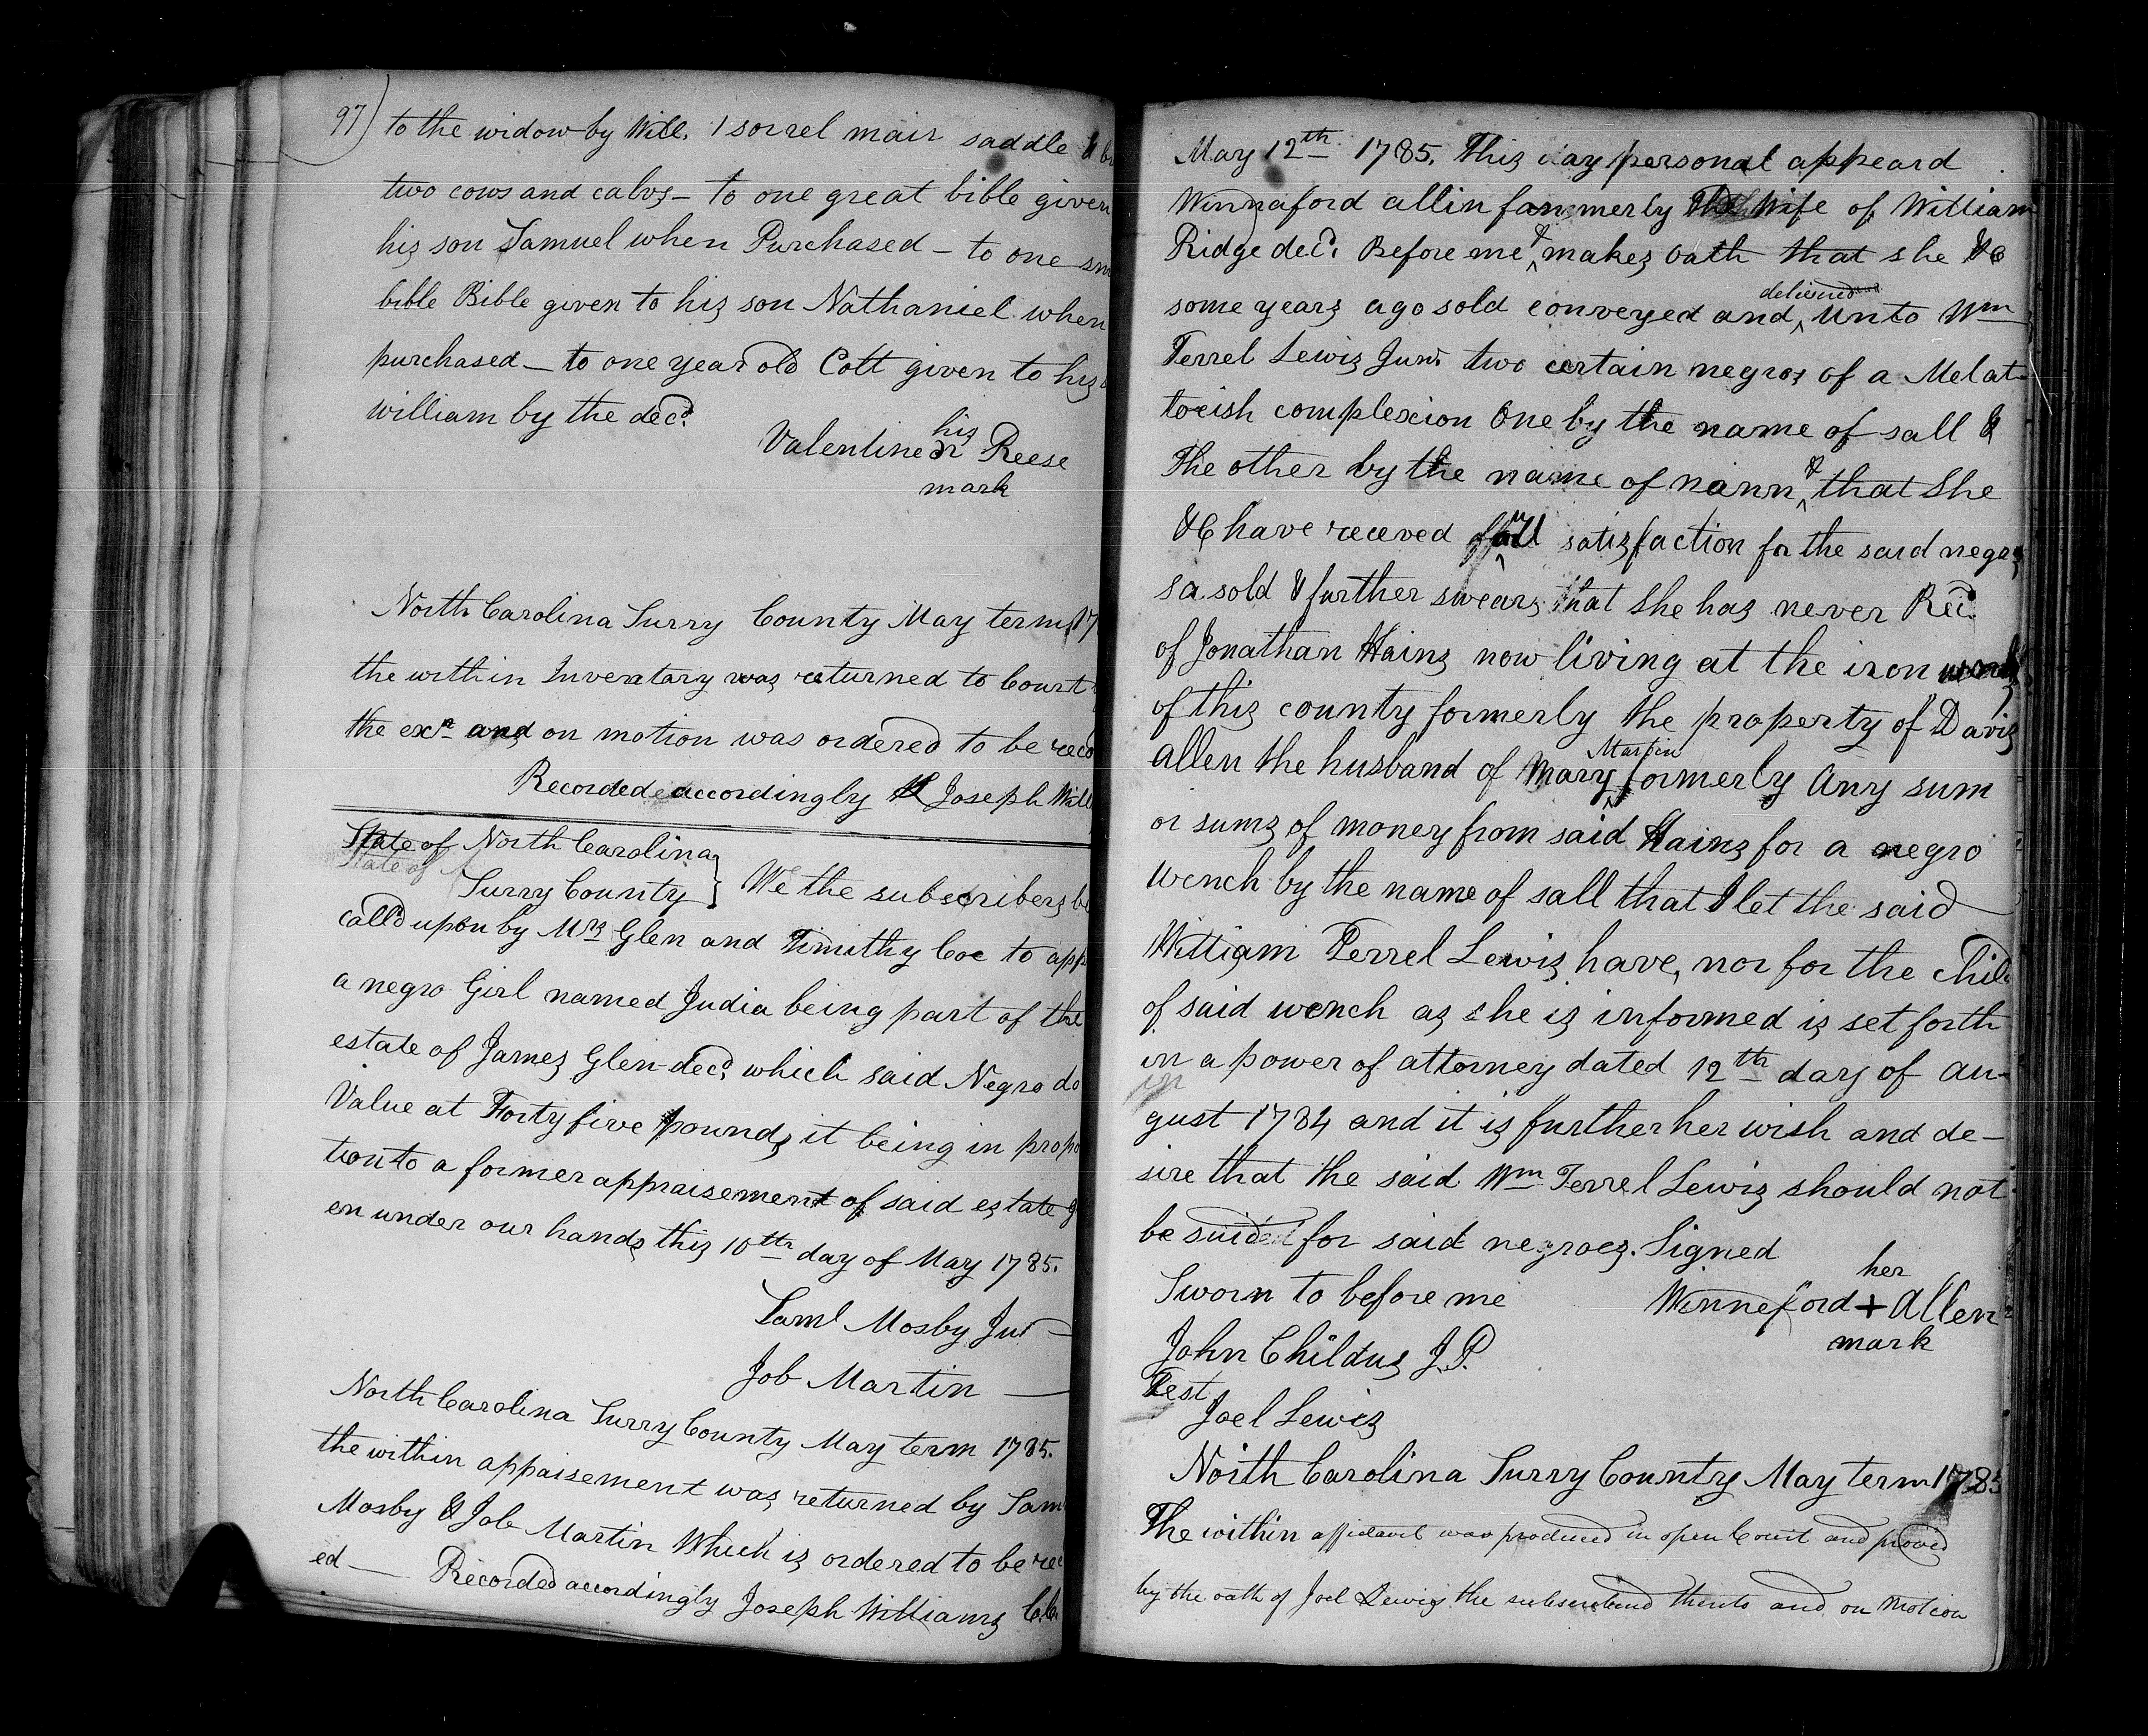 97) to the widow by Will. 1 sorrel mair saddle &
two cows and calvs – to one great bible given
his son Samuel when Purchased – to one
bible Bible given to his son Nathaniel when
purchased – to one year old Colt given to his
william by the decd.
his
Valentine R Reese
mark
North Carolina Surry County May term 17
the within Inventary was returned to Court
the exr. and on motion was ordered to be
Recorded accordingly Joseph
State of North Carolina }
State of
Surry County } We the subscribers
calld upon by Mrs Glen and Timithy Coe to
a negro Girl named Judia being part of the
estate of James Glen decd. which said Negro do
Value at Forty five pounds it being in
tion to a former appraisement of said estate
en under our hands this 10th day of May 1785.
Saml Mosby Jur
Job Martin —
North Carolina Surry County May term 1785.
the within appaisement was returned by Sam
Mosby & Job Martin Which is ordered to be
ed — Recorded accordingly Joseph Williams C.C.
May 12th 1785. This day personal appeard
Winnaford allin fammerly The Wife of William
Ridge decd. Before me & makes oath that she &c
some years ago sold conveyed and delivered unto Wm
Terrel Lewis Junr. two certain negros of a Melat-
toeish complexion One by the name of sall &
The other by the name of nann & that She
&c have receved full satisfaction for the said negros
so sold & further swears that She has never Recd.
of Jonathan Hains now living at the iron works
of this county formerly the property of David
allen the husband of Mary Martin formerly any sum
or sums of money from said Hains for a negro
wench by the name of sall that I let the said
William Terrel Lewis have, nor for the Child
of said wench as she is informed is set forth
in a power of attorney dated 12th day of au-
in
gust 1784 and it is further her wish and de-
sire that the said Wm Terrel Lewis should not
be suid for said negroes. Signed
her
Sworn to before me Winneford + Allen
mark
John Childus J.P.
Test
Joel Lewis
North Carolina Surry County May term 1785
The within affidavit was produced in open Court and proved
by the oath of Joel Lewis the thereto and on Motion